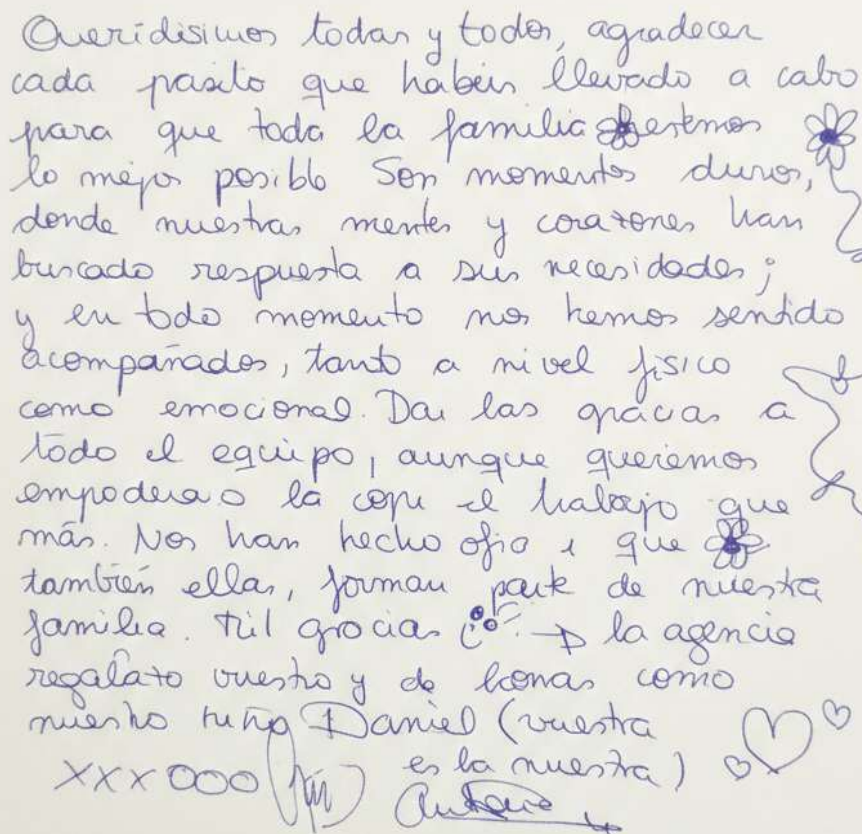 Queridisimos todas y todos, agradecer
cada pasito que habéis llevado a cabo
para que toda la familia estemos
lo mejor posible Son momentos duros,
donde nuestras mentes y corazones han
buscado respuesta a sus necesidades;
y en todo momento nos hemos sentido
acompañados, tanto a nivel físico
como emocional. Dar las gracias a
todo el equipo, aunque queremos
la el trabajo que
más. Nos han hecho que
también ellas, forman parte de nuestra
familia. Mil gracias → la agencia
vuestro y de como
nuestro Daniel (vuestra
es la nuestra)
XXX OOO